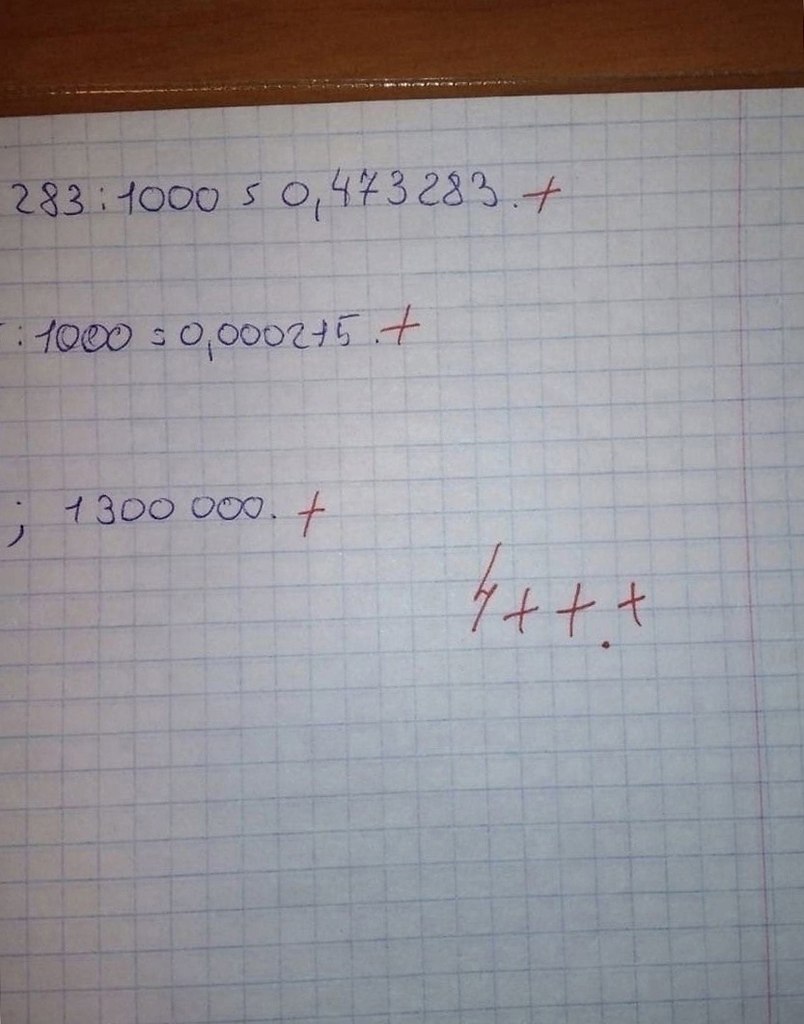 283:1000 = 0,473283. +
:1000 = 0,000215. +
; 1300 000. +
4+++.